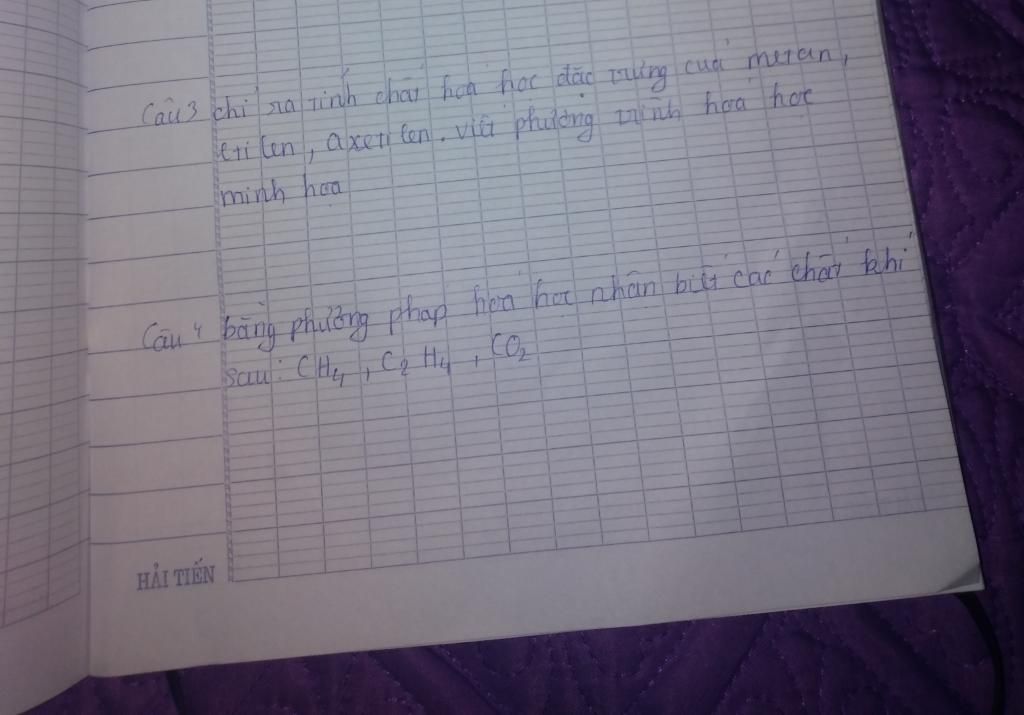 Câu 3 chỉ ra tính chất hoá học đặc trưng của metan,
etilen, axetilen. viết phương trình hoá học
minh hoạ
Câu 4 bằng phương pháp hoá học nhận biết các chất khí
sau: CH₄, C₂H₄, CO₂
HẢI TIẾN